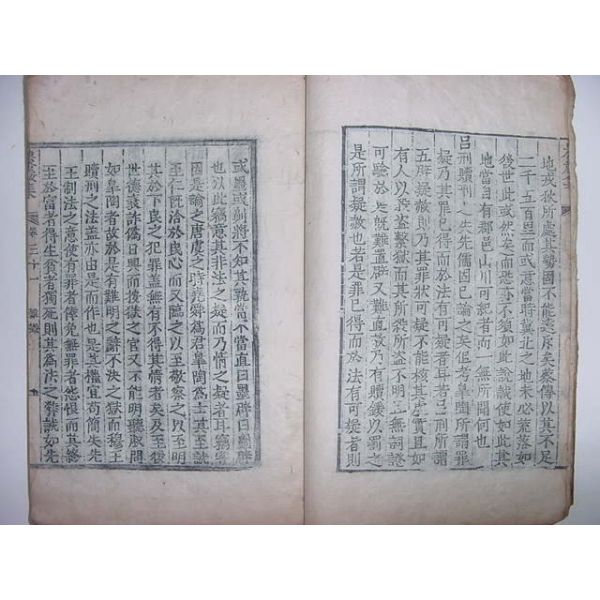 地或狄所處其勢固不能悉斥矣蔡傳以其不足
二千五百里而或意當時冀北之地未必荒落如
後世此或然矣而恐亦不須如此說誠使如此其
地當自有都邑山川可記者而一無所聞何也
呂刑贖刑人生先儒因已論之矣但考皐陶所謂罪
疑乃其罪已得而於法有可疑者耳若呂刑所謂
五刑疑赦則乃其罪狀可疑不能核其虛實且如
有人以將盜繫獄而其所犯盜不明三無詞證
可驗於是旣難置辟又難直放乃有贖鍰以罰之
是所謂疑赦也若是罪已得而於法有可疑者則
或墨或剕將不知其孰當不當直曰墨辟
也以此竊意其非法之疑而乃情之疑者耳竊嘗
因是論之唐虞之時堯舜爲君皐陶爲士其至誠
至仁旣洽於民心而又臨之以至敬察之以至明
其於下民之犯罪蓋無有不得其情者矣及至後
世德衰詐僞日興而後獄之官又不能明聽取問
如皐陶者故於是有難明之辭不決之獄而穆王
贖刑之法蓋亦由是而作也是豈權宜苟簡失先
王制法之意使有罪者倖免無罪者恣恨而其終
至於富者得生貧者獨死則其爲法之弊誠如先
卷三十一